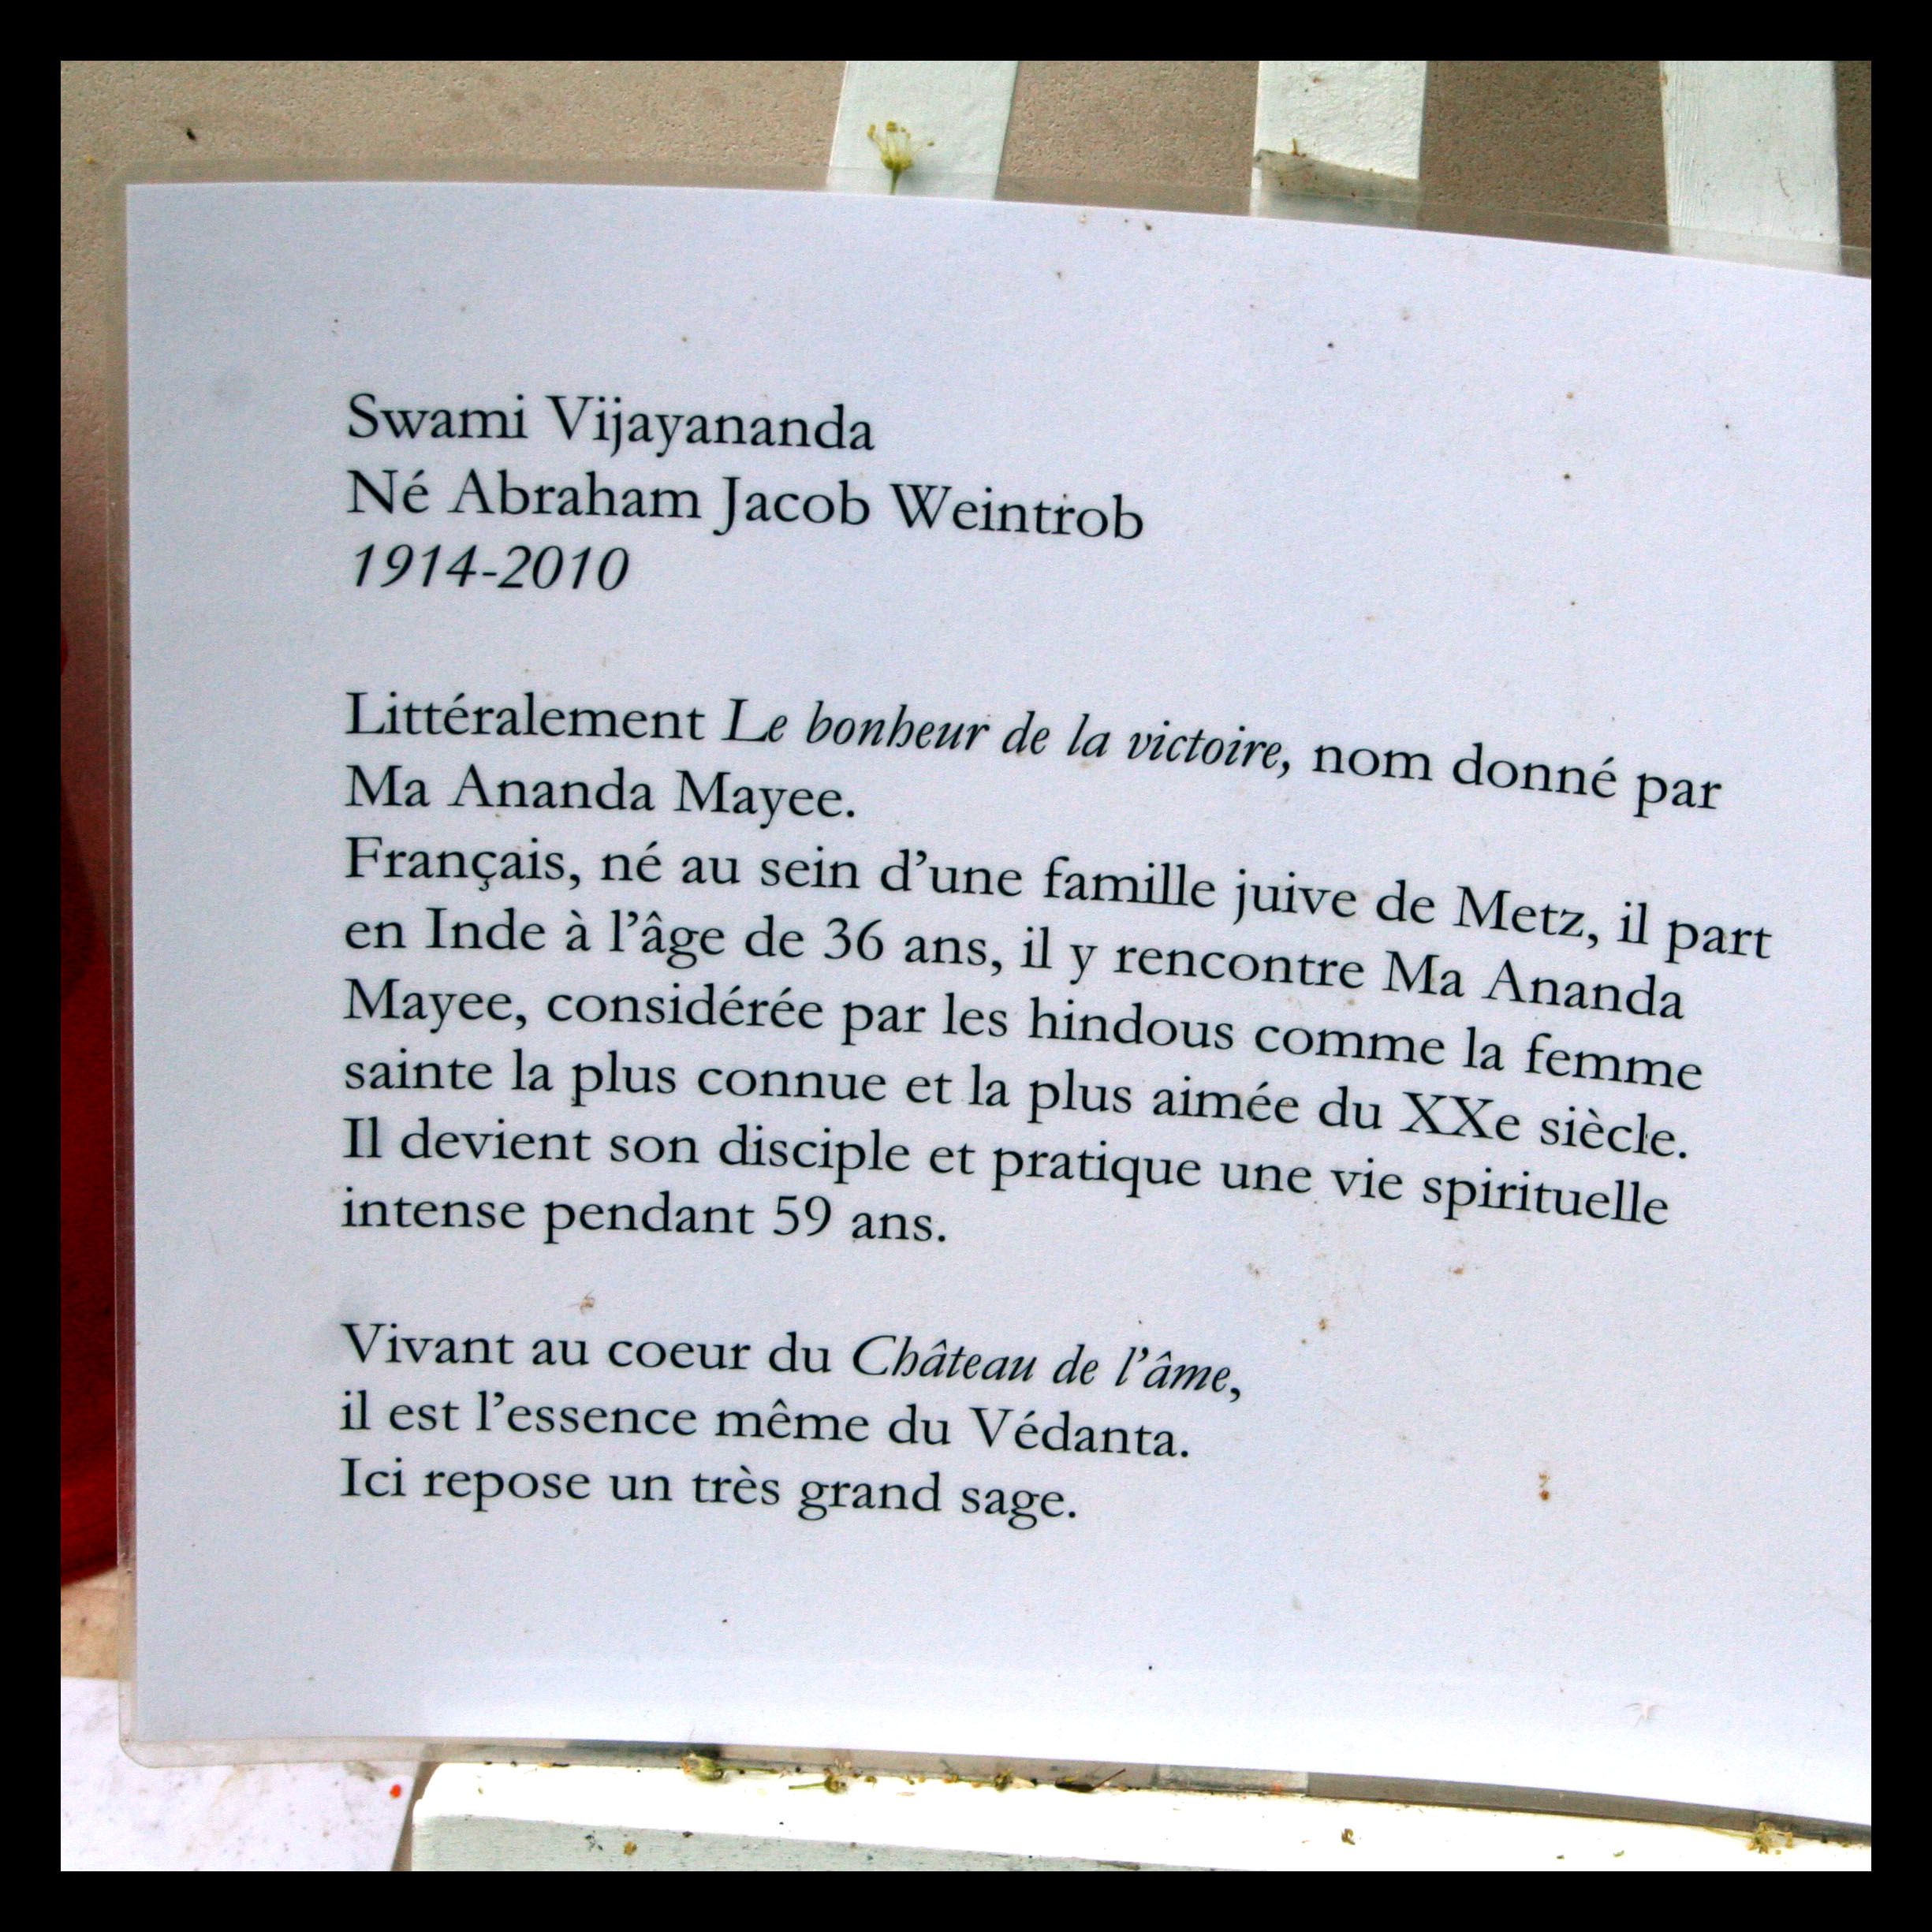 Swami Vijayananda
Né Abraham Jacob Weintrob
1914-2010
Littéralement Le bonheur de la victoire, nom donné par
Ma Ananda Mayee.
Français, né au sein d’une famille juive de Metz, il part
en Inde à l’âge de 36 ans, il y rencontre Ma Ananda
Mayee, considérée par les hindous comme la femme
sainte la plus connue et la plus aimée du XXe siècle.
Il devient son disciple et pratique une vie spirituelle
intense pendant 59 ans.
Vivant au coeur du Château de l’âme,
il est l’essence même du Védanta.
Ici repose un très grand sage.